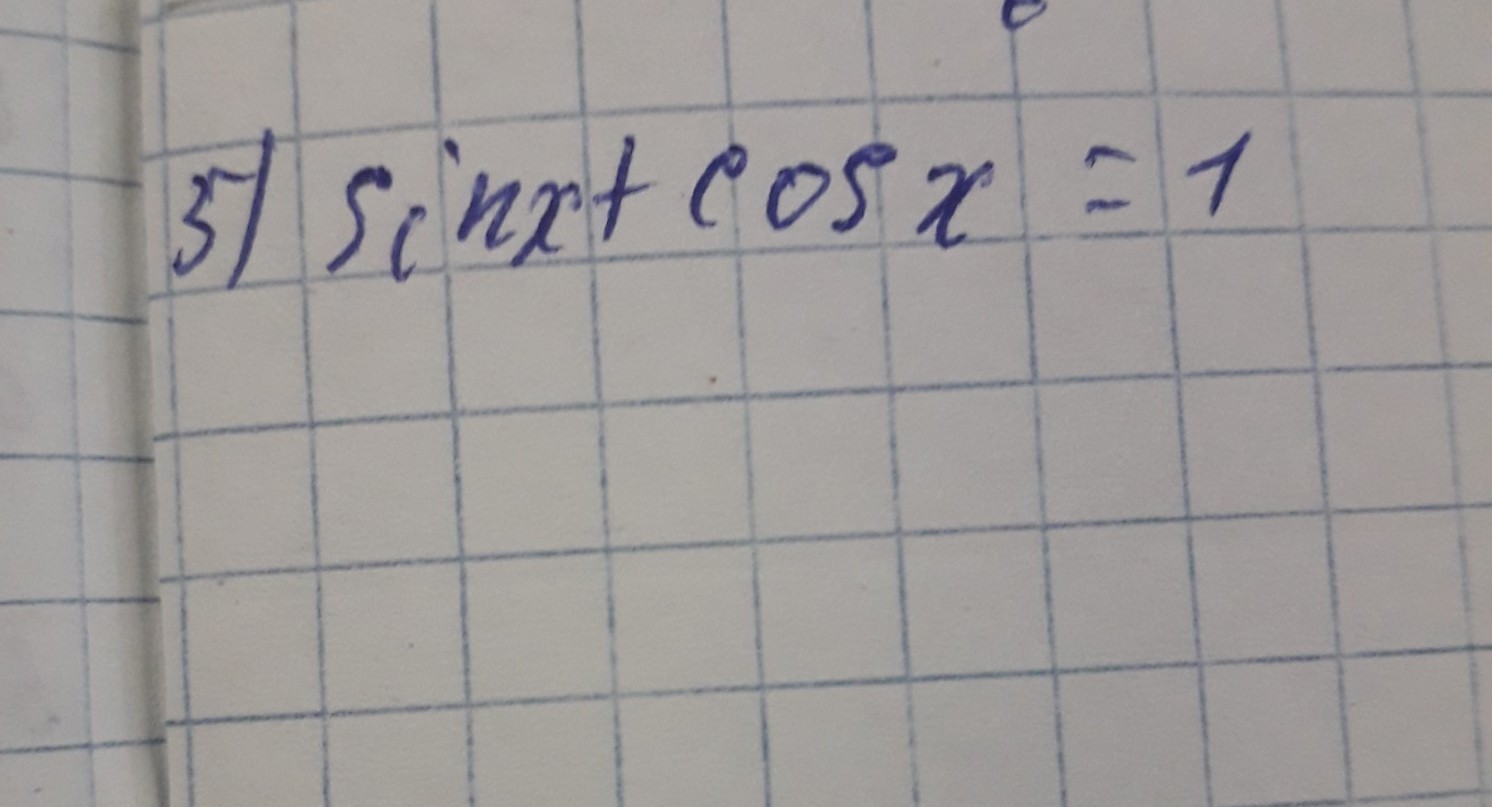 5) sinx + cosx = 1